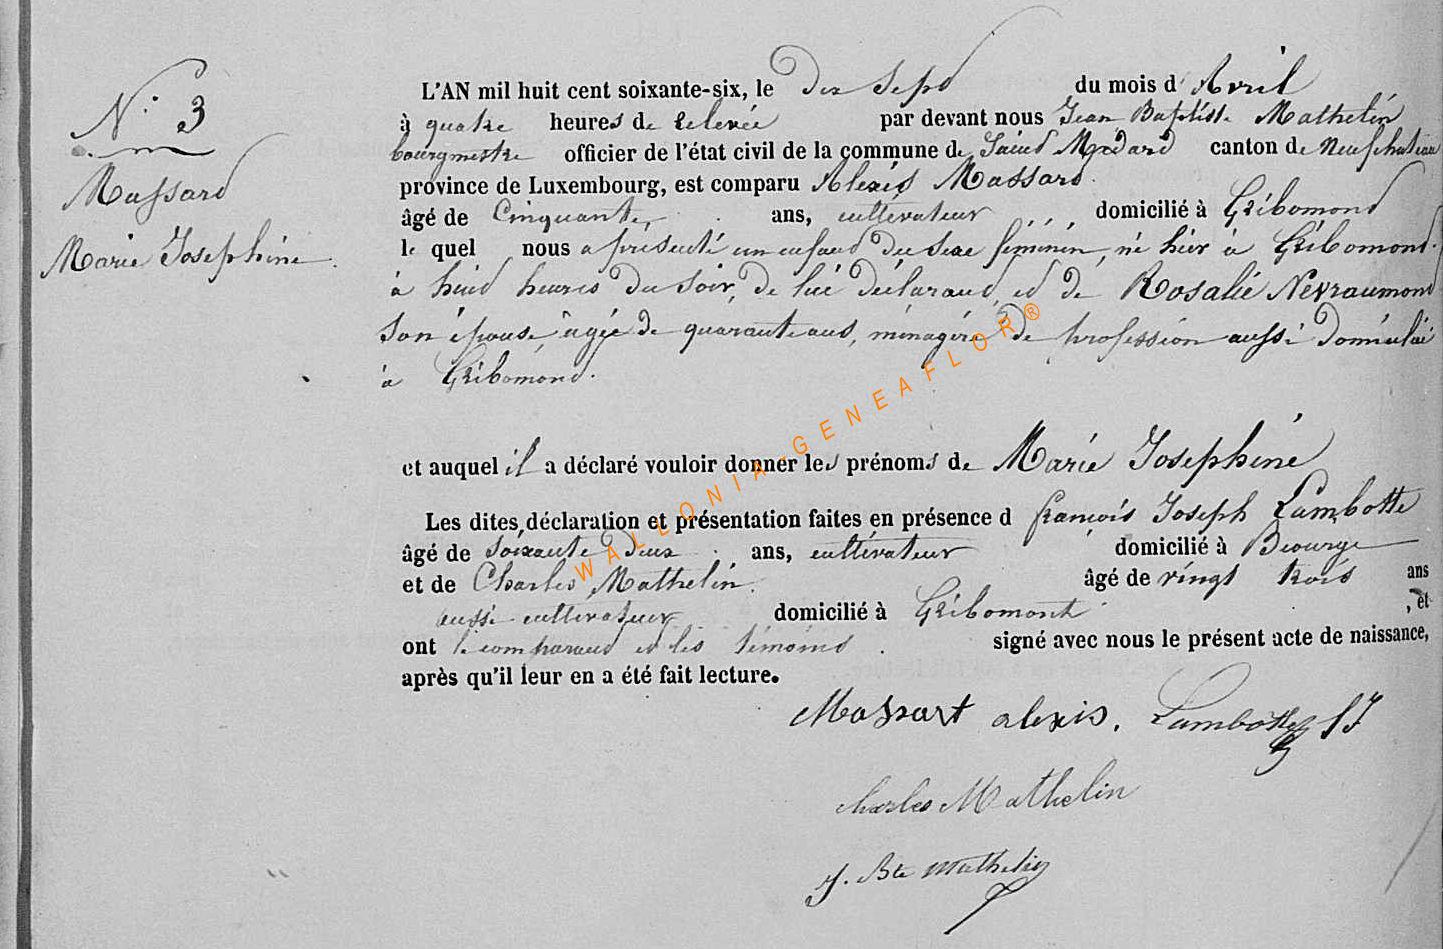 N° 3
Massard
Marie Josephine.
L'AN mil huit cent soixante-six, le dix Sept du mois d'Avril
à quatre heures de relevée par devant nous Jean Baptiste Mathelin
bourgmestre officier de l'état civil de la commune de Saint Médard canton de Neufchateau
province de Luxembourg, est comparu Alexis Massard
âgé de Cinquante ans, cultivateur domicilié à Gribomond
le quel nous a présenté un enfant du sexe féminin, né hier à Gribomond.
à huit heures du soir, de lui déclarant et de Rosalie Nevraumond
son épouse, agée de quarante ans, ménagère de profession aussi domicilié
à Gribomond.
et auquel il a déclaré vouloir donner les prénoms de Marie Josephine
Les dites déclaration et présentation faites en présence d françois Joseph Lambotte
âgé de soixante deux ans, cultivateur domicilié à Biourge
et de Charles Mathelin. âgé de vingt trois ans
aussi cultivateur domicilié à Gribomont , et
ont le comparant et les témoins signé avec nous le présent acte de naissance,
après qu'il leur en a été fait lecture.
Massart alexis. Lambotte fJ
charles Mathelin
J. Bte Mathelin
WALLONIA-GENEAFLOR®